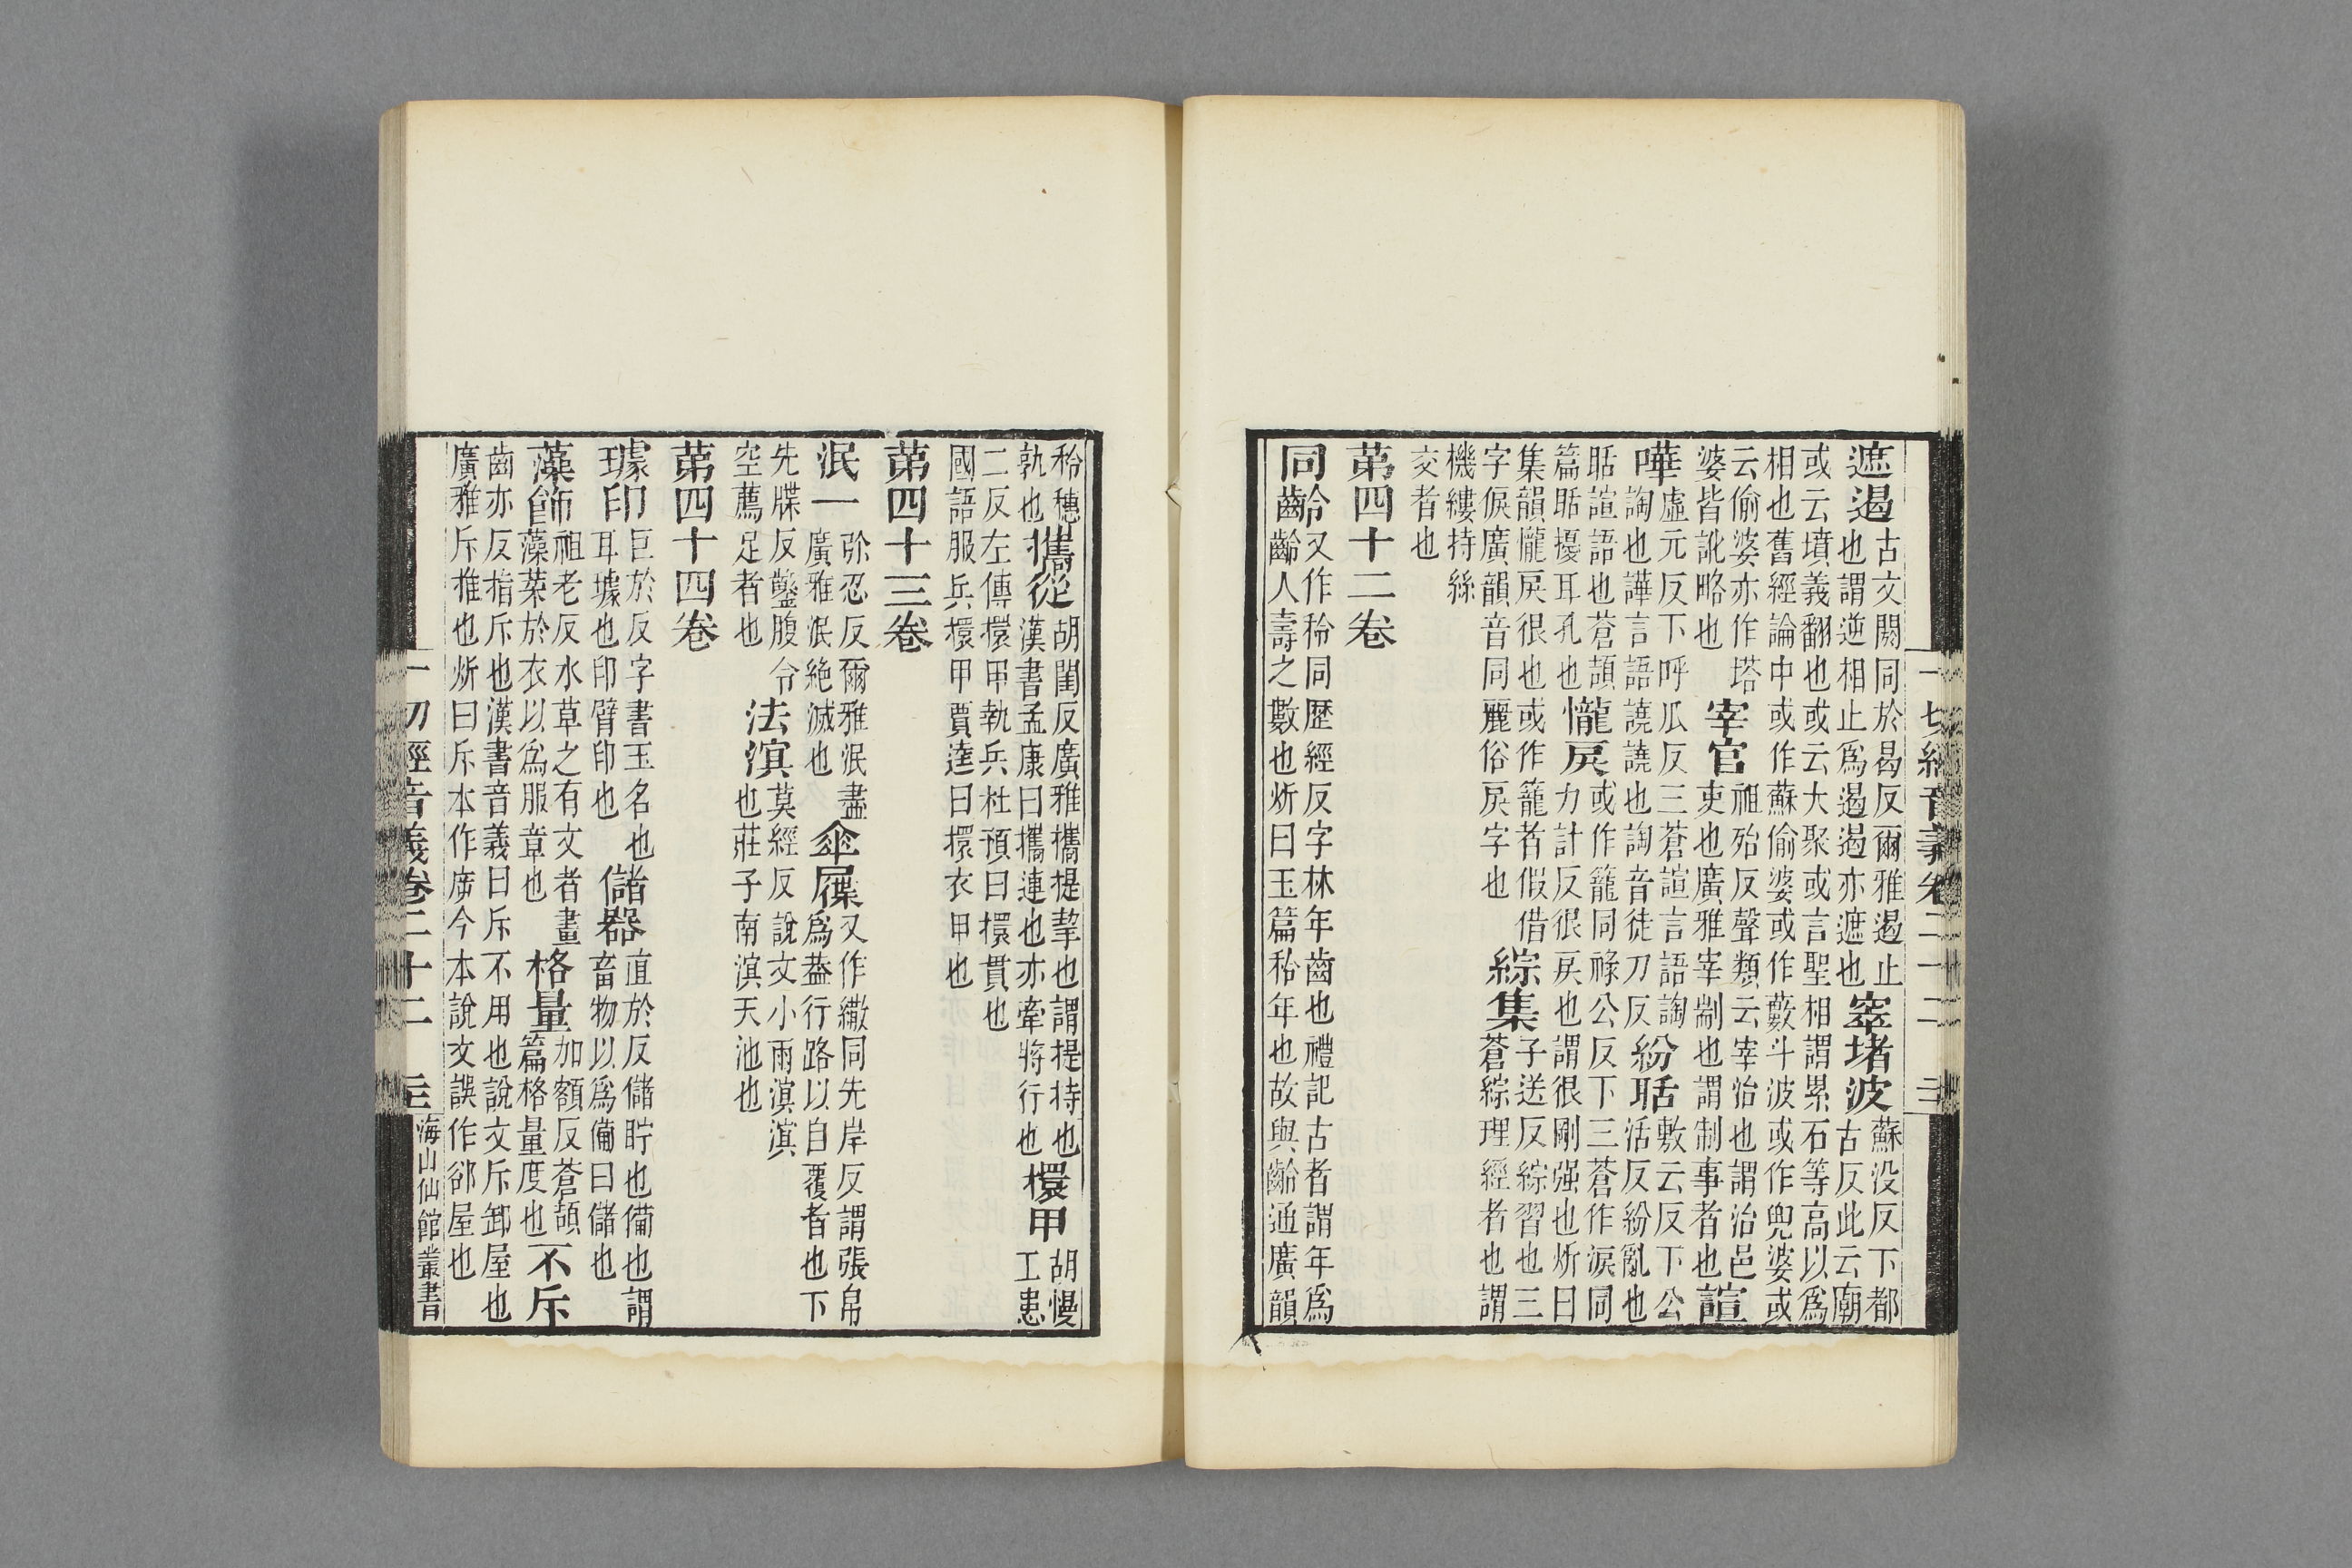 遮遏古文閼同於曷反爾雅遏止也謂逆相止爲遏遏亦遮也窣堵波蘇没反下都古反此云廟
或云墳義翻也或云大聚或言聖相謂累石等高以爲相也舊經論中或作蘇偷婆或作藪斗波或作兜婆或
云偷婆亦作塔婆皆訛略也宰官祖殆反聲類云宰治也謂治邑吏也廣雅宰制也謂制事者也諠
嘩虛元反下呼瓜反三蒼諠言語䛬䛬也譁言語譊譊也䛬音徒刀反紛聒敷云反下公活反紛亂也
聒諠語也蒼頡篇聒擾耳孔也儱戾或作籠同祿公反下三蒼作淚同力計反很戾也謂很剛强也炘曰
集韻儱戾很也或作籠者假借字㑦廣韻音同麗俗戾字也綜集子送反綜習也三蒼綜理經者也謂
機縷持絲交者也
第四十二卷
同齡又作秢同歷經反字林年齒也禮記古者謂年爲齡齡人壽之數也炘曰玉篇秢年也故與齡通廣韻
一切經音義卷二十二
秢穗孰也攜從胡閨反廣雅攜提挈也謂提持也漢書孟康曰攜連也亦牽將行也擐甲胡慢工患
二反左傳擐甲執兵杜預曰擐貫也國語服兵擐甲賈逵曰擐衣甲也
第四十三卷
泯一弥忍反爾雅泯盡也廣雅泯絶滅也傘屧又作繖同先岸反謂張帛爲葢行路以自覆者也下
先牒反鑿腹令空薦足者也法溟莫經反說文小雨溟溟也莊子南溟天池也
第四十四卷
璩印巨於反字書玉名也耳璩也印臂印也儲器直於反儲貯也備也謂畜物以爲備曰儲也
藻飾祖老反水草之有文者畫藻菜於衣以爲服章也格量加額反蒼頡篇格量度也不斥
齒亦反指斥也漢書音義曰斥不用也說文斥卸屋也廣雅斥推也炘曰斥本作㡿今本說文誤作郤屋也
一切經音義卷二十二
海山仙館叢書